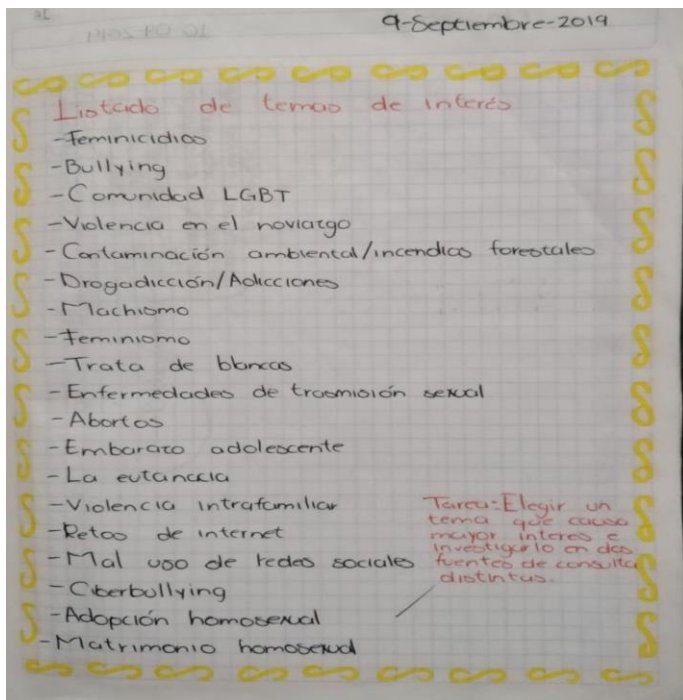 9-Septiembre-2019
Listado de temas de interés
-Feminicidios
-Bullying
-Comunidad LGBT
-Violencia en el noviazgo
-Contaminación ambiental/incendios forestales
-Drogadicción/Adicciones
-Machismo
-Feminismo
-Trata de blancas
-Enfermedades de trasmisión sexual
-Abortos
-Embarazo adolescente
-La eutanacia
-Violencia intrafamiliar
-Retos de internet
-Mal uso de redes sociales
-Ciberbullying
-Adopción homosexual
-Matrimonio homosexual
Tarea: Elegir un
tema que causa
mayor interes e
investigarlo en dos
fuentes de consulta
distintas.